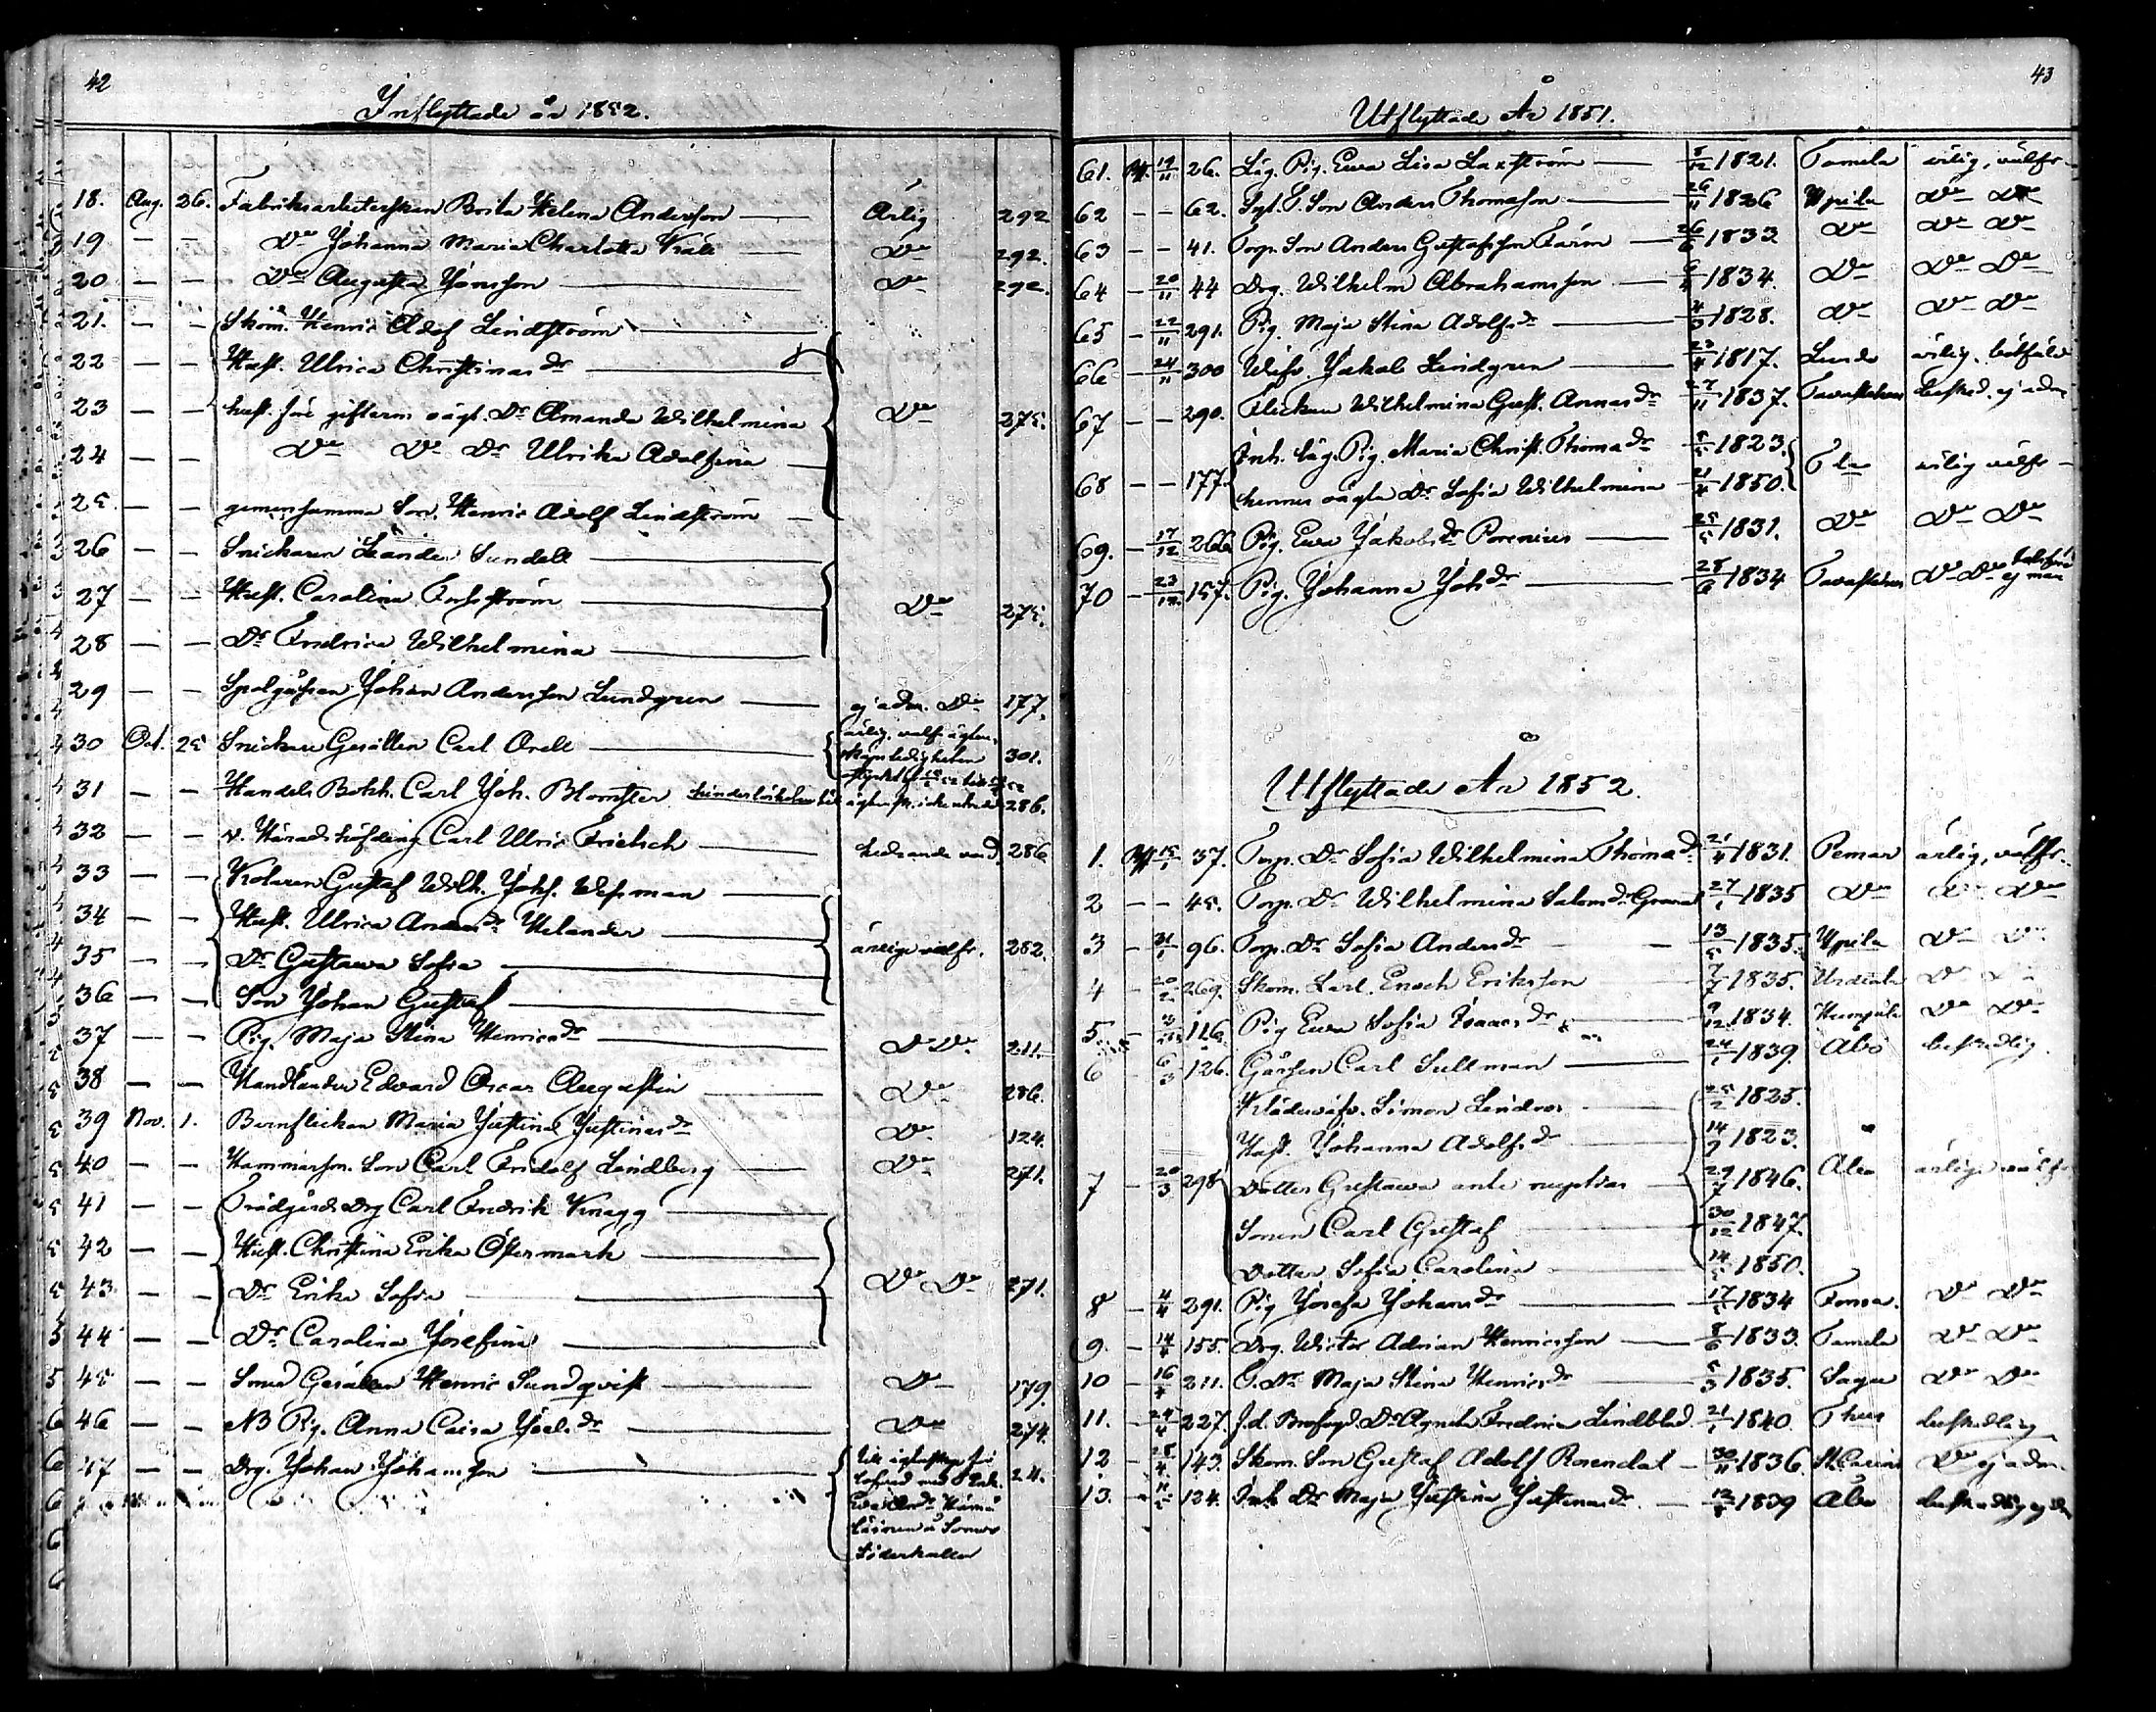 42
Inflyttade år 1852.
18. Aug. 26. Fabriksarbeterskan Brita Helena Andersson Ärlig 292
19 — — Do Johanna Maria Charlotta Do 292.
20 — — Do Augusta Jönsson Do 292.
21. — — Skom. Henric Adolf Lindström
22 — — Hust. Ulrica Christinas dr
23 — — hust. före gifterm. oägt. Dr Amanda Wilhelmina Do 275.
24 — — Do Do Dr Ulrika Adolfina
25. — — gemensamma Son. Henric Adolf Lindström
26 — — Snickaren Leander Sundell
27 — — Hust. Carolina Do 275.
28 — — Dr Fredrica Wilhelmina
29 — — Spolgossen Johan Andersson Lundgren ej adm. Do 177.
30 Oct. 25 Snickare Gesällen Carl Orell ärlig, välfr. 301.
31 — — Handels Bokh. Carl Joh. Blomster hinderlösheten till 286.
32 — — v. Häradshöfding Carl Ulric Frietsch hedrande vand. 286
33 — — Gustaf Wilh. Johs. Wessman
34 — — Hust. Ulrica Anders dr Helander
35 — — Dr Gustawa Sofia ärlige välfr. 282.
36 — — Son Johan Gustaf
37 — — Pig. Maja Stina Henrics dr Do Do 211.
38 — — Handlanden Edvard Oscar Augustin Do 286.
39 Nov. 1. Barnflickan Maria Justina Justinas dr Do 124.
40 — — Hammarsm. Son Carl Fridolf Lindberg Do 271.
41 — — Trädgårds Drg Carl Fredrik Knagg
42 — — Hust. Christina Erika Östermark
43 — — Dr Erika Sofia Do Do 271.
44 — — Dr Carolina Josefina
45 — — Smed Gesällen Henric Sundqvist Do 179.
46 — — NB Pig. Anna Caisa Joel. dr Do 274.
47 — — Drg. Johan Johansson 24.
43
Utflyttade År 1851.
61. 19/11 26. Pig. Ewa Lisa Laxström 8/12 1821. Tamela ärlig, välfr
62 — — 62. Son Anders Thomasson 26/11 1826 Upila Do Do
63 — — 41. Torp. Son Anders Gustafsson Färm 26/6 1833. Do Do Do
64 — 20/11 44 Drg. Wilhelm Abrahamsson 1834. Do Do Do
65 — 22/11 291. Pig. Maja Stina Adolfs dr 4/3 1828. Do Do Do
66 — 24/11 300 Wäfv. Jakob Lindgren 23/4 1817. Lundo ärlig.
67 — — 290. Flickan Wilhelmina Gust. Annas dr 27/11 1837. Tavastehus besked. ej adm
Inh. Pig. Maria Christ. Thoma dr 1823.
68 — — 177. hennes oägta Dr Sofia Wilhelmina 21/4 1850. ärlig välfr
69. — 17/12 266 Pig. Ewa Jakobs dr Porenius 25/5 1831. Do Do Do
70 — 23/12 157. Pig. Johanna Joh dr 28/6 1834 Tavastehus Do Do
Utflyttade År 1852.
1. 37. Torp. Dr Sofia Wilhelmina Thoma dr 21/4 1831. Pemar ärlig, välfr.
2 — — 45. Torp. Dr Wilhelmina Salom dr 1835 Do Do Do
3 — 31/1 96. Torp. Dr Sofia Anders dr 13/5 1835. Upila Do Do
4 — 20/2 269. Skom. Lärl. Enoch Eriksson 7/7 1835. Do
5 — 116. Pig Ewa Sofia Isaacs dr 9/12 1834. Do Do
6 — 6/3 126. Gossen Carl Sullman 1839. Åbo beskedlig.
Klädesväfv. Simon 25/2 1825.
Hust. Johanna Adolfs dr 14/9 1823.
7 — 20/3 298 Dotter Gustawa ante nuptias 29/7 1846. Åbo ärlige välfr
Sonen Carl Gustaf 30/12 1847.
Dotter Sofia Carolina 1850.
8 — 4/4 291. Pig Josefa Johans dr 1834 Do Do
9. — 14/4 155. Drg. Wictor Adrian Henricsson 8/6 1833. Tamela Do Do
10 — 16/4 211. Dr Maja Stina Henrics dr 5/3 1835. Sagu Do Do
11. — 24/4 227. Dr Agneta Fredrica Lindblad 1840. beskedlig
12 — 28/4 143. Skom. Son Gustaf Adolf Rosendal 30/11 1836. Do ej adm.
13. — 124. Inh. Dr Maja Justina Justinas dr 1839 Åbo beskedlig